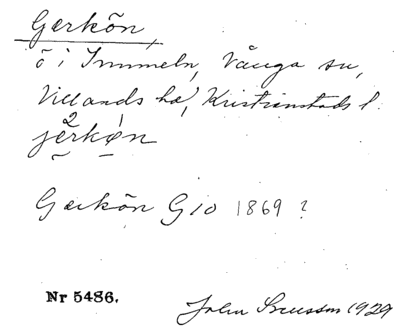 Gerkön,
ö i Immeln, Vånga sn,
Villands hd, Kristianstads l.
jerkøn
Gerkön G10 1869?
Nr 5486.
John 1929